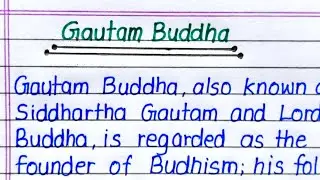 Gautam Buddha
Gautam Buddha, also known
Siddhartha Gautam and Lord
Buddha, is regarded as the
founder of Budhism; his